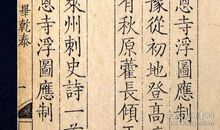 恩寺浮圖應制
豫從初地登高
有秋原藿長傾
萊州刺史詩一
恩寺浮圖應制
畢乾泰